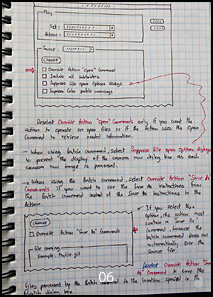 Play
Set:
Action:
Source
Choose
Override Action "Open" Commands
Include All Subfolders
Suppress File Open Options Dialogs
Suppress Color Profile Warnings
Deselect Override Action "Open" Commands only if you want the
actions to operate on open files or if the Action uses the Open
Command to retrieve needed information.
When using Batch command, select Suppress file open options dialogs
to prevent the display of the camera raw dialog box as each
camera raw image is processed.
When using the Batch command, select "Override Action "Save As"
Commands" if you want to use the Save As instructions from
the Batch command instead of the Save As instructions in the
Action.
Override Action "Save As" Commands
File naming
Example: MyFile.gif
If you select this
option, the action must
contain a Save As
Command, because the
Batch command does not
automatically save the
Select Override Action "Save
As" Commands to save the
files processed by the Batch command to the location specified in the
06